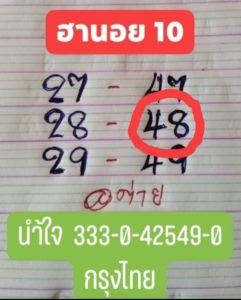 ฮานอย 10
27 - 47
28 - 48
29 - 49
@ต่าย
นำ้ใจ 333-0-42549-0
กรุงไทย